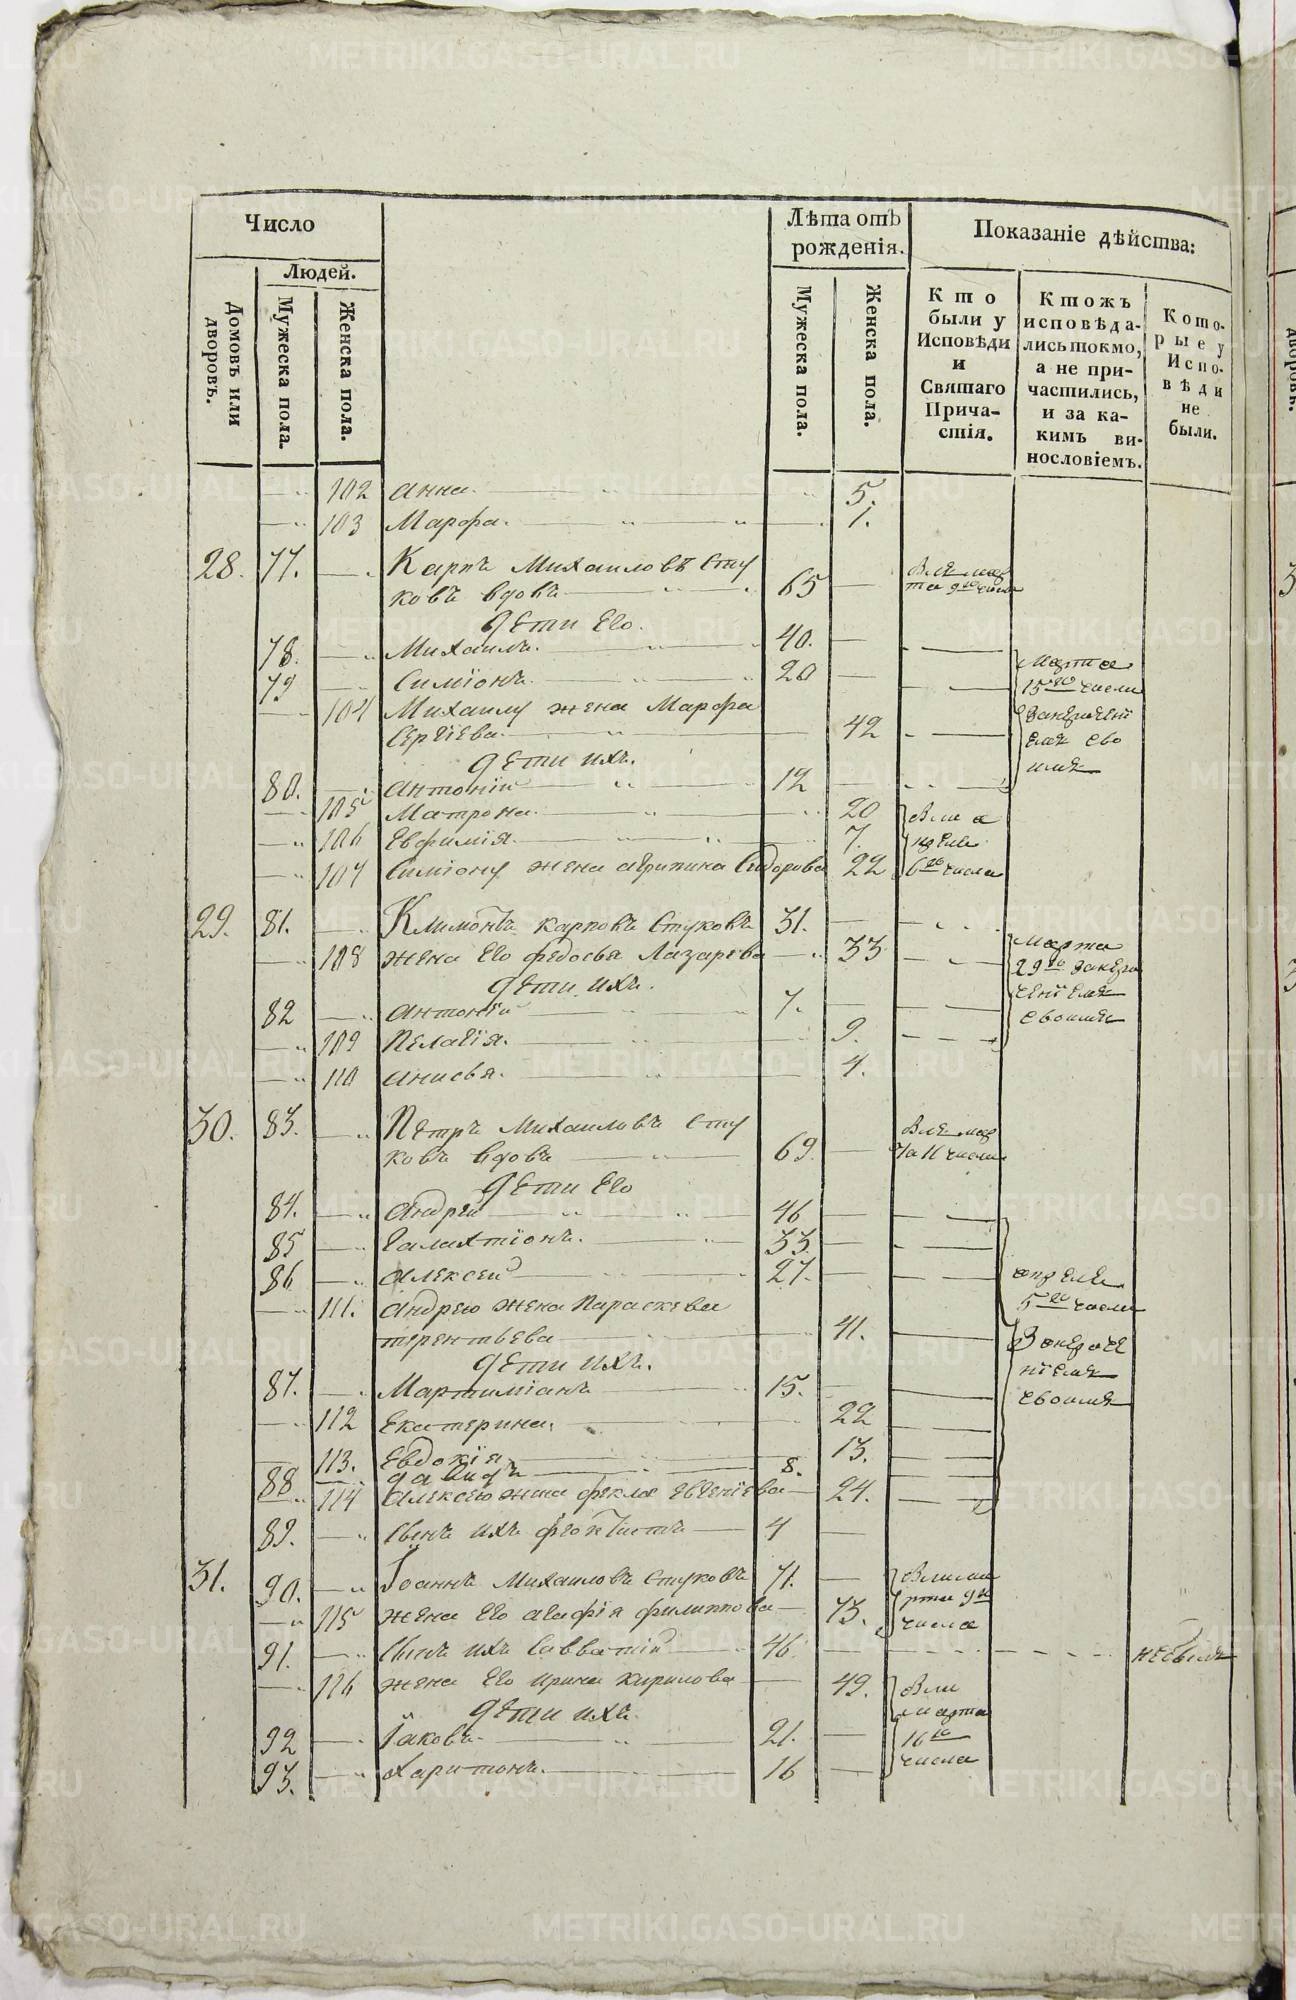 Число
Лѣта отъ рожденія.
Показаніе дѣйства:
Людей.
Домовъ или дворовъ.
Мужеска пола.
Женска пола.
Мужеска пола.
Женска пола.
Кто были у Исповѣди и Святаго Причастія.
Ктожъ исповѣдались токмо, а не причастились, и за какимъ винословіемъ.
Которые у Исповѣди не были.
102 Анна 5.
103 Марфа. 1.
28. 77. Карпъ Михаиловъ Сту
ковъ вдовъ 65
дѣти Его.
78. Михаилъ. 40.
79 Симіонъ. 20
Марта
15го числа
104 Михаилу жена Марфа
Сергіева. 42
дѣти ихъ.
80. Антоній 12
105 Матрона. 20
106 Евфимія. 7.
107 Симіону жена Агрипина Сидорова 22
6го числа
29. 81. Климонтъ Карповъ Стуковъ 31.
108 жена Его Федосья Лазарева 33
дѣти ихъ.
82 Антоній 7.
109 Пелагія. 9.
110 Анисья. 4.
Марта
29го
30. 83. Петръ Михаиловъ Сту
ковъ вдовъ 69.
дѣти Его
84. Андрей 46
85 Галактіонъ. 33.
86 Алексей 27.
111. Андрею жена Параскева
терентьева 41.
дѣти ихъ.
87. Мартиміанъ 15.
112 Екатерина. 22
113. Евдокія 13.
88 Давидъ 8.
114 Алексею жена Фекла Евгеніева 24.
89. Сынъ ихъ Феоктистъ 4
5го числа
31. 90. Іоаннъ Михаиловъ Стуковъ 71.
115 жена Его Агафія филиппова 73.
91. Сынъ ихъ Савватій 46. небылъ
116 жена Его Ирина Кирилова 49.
дѣти ихъ.
92 Іаковъ. 21.
93. Харитонъ. 16
марта
16го
числа
METRIKI.GASO-URAL.RU